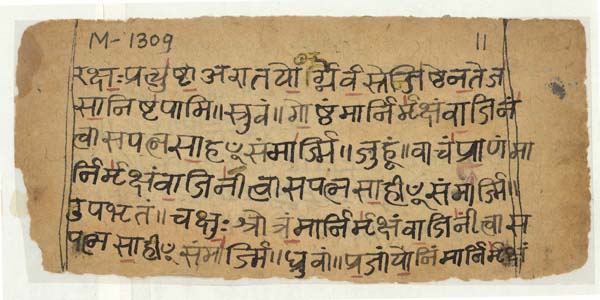 M-1309 11
रक्षः प्रत्युष्टा अरातयो ग्नेर्वस्तेजिष्ठेनतेज
सानिष्टपामि॥स्रुवं॥गोष्ठंमानिर्मृक्षंवाजिनं
त्वासपत्नसाहꣳसंमार्ज्मि॥जुहूं॥वाचंप्राणंमा
निर्मृक्षंवाजिनींत्वासपत्नसाहीꣳसंमार्ज्मि॥
उपभृतं॥चक्षुः श्रोत्रंमानिर्मृक्षंवाजिनींत्वास
पत्नसाहीꣳसंमार्ज्मि॥ध्रुवां॥प्रजांयोनिंमानिर्मृक्षं